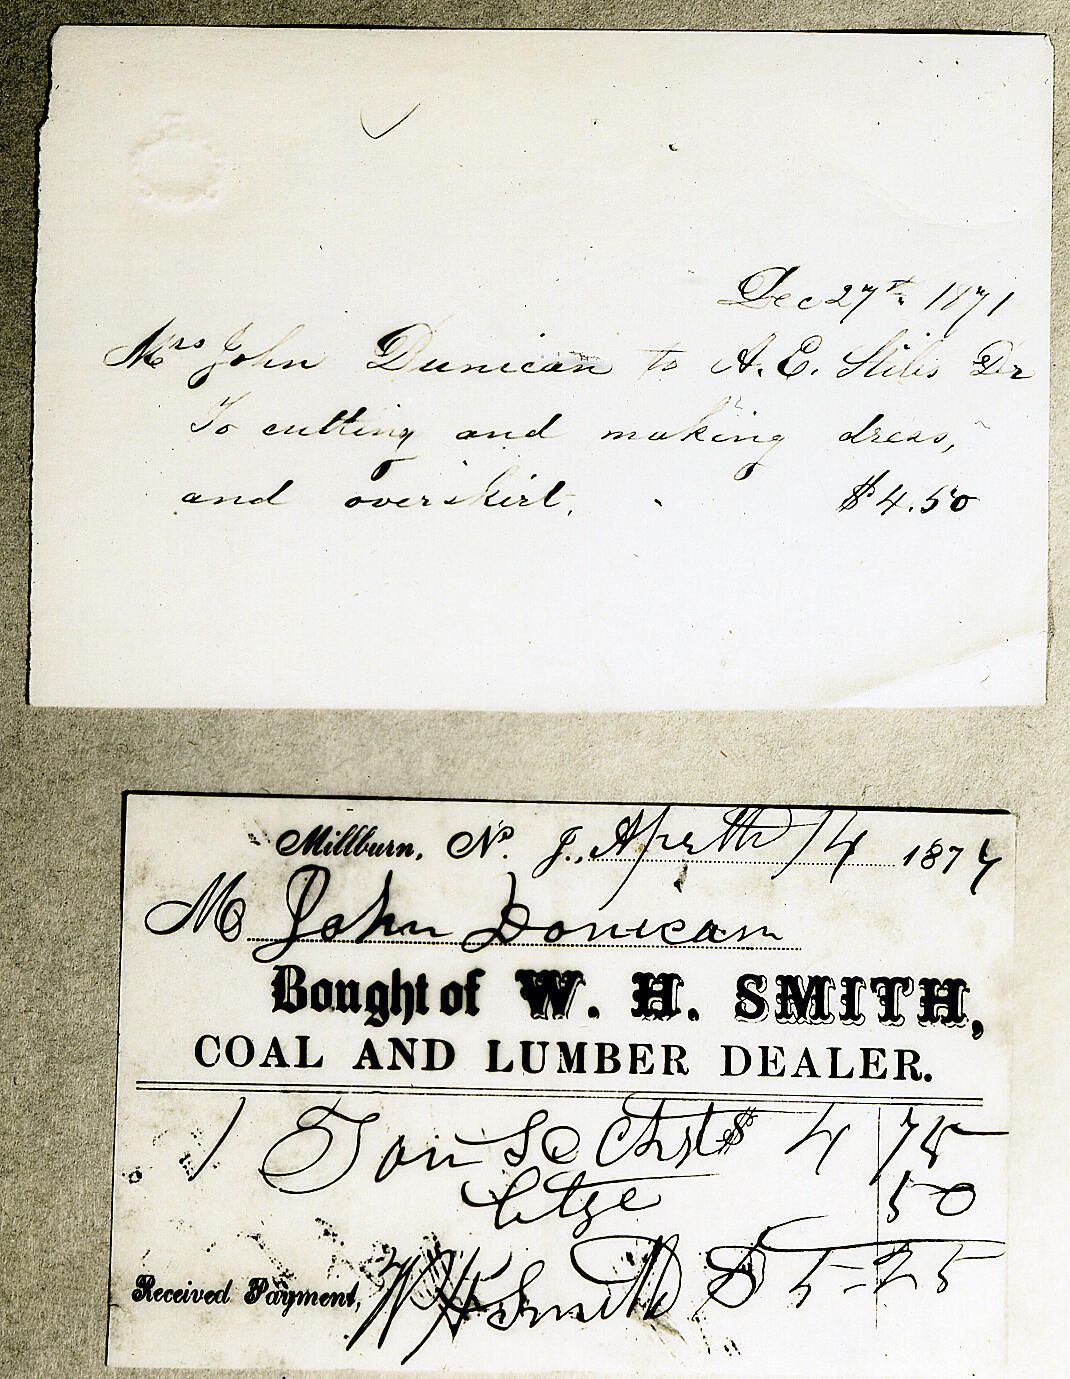 Dec 27th 1871
Mrs John Dunican to A. E. Stiles Dr
To cutting and making dress,
and overskirt. $4.50
Millburn, N. J., 14 1877
M John Donican
Bought of W. H. SMITH,
COAL AND LUMBER DEALER.
1 Ton $ 4 75
Ctge 50
Received Payment, W H Smith $ 5-25